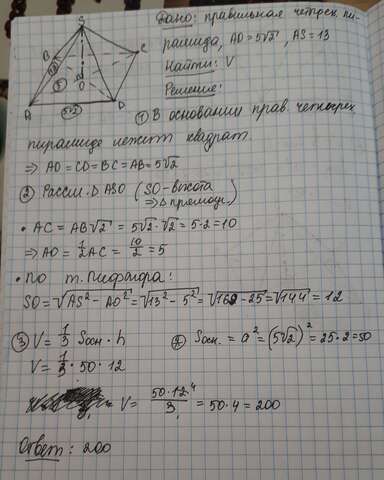 Дано: правильная четырех пи-
рамида, AD = 5√2, AS = 13
Найти: V
Решение:
S
B
C
13
5
O
A
5√2
D
① В основании прав. четырех
пирамиде лежит квадрат.
⇒ AD = CD = BC = AB = 5√2
② Рассм. Δ ASO (SO - высота
⇒ Δ прямоуг.)
• AC = AB√2 = 5√2 · √2 = 5·2 = 10
⇒ AO = 1/2 AC = 10/2 = 5
• По т. Пифагора:
SO = √AS² - AO² = √13² - 5² = √169 - 25 = √144 = 12
③ V = 1/3 Sосн · h
Sосн. = a² = (5√2)² = 25·2 = 50
V = 1/3 · 50 · 12
V = 50·12⁴/3₁ = 50·4 = 200
Ответ: 200